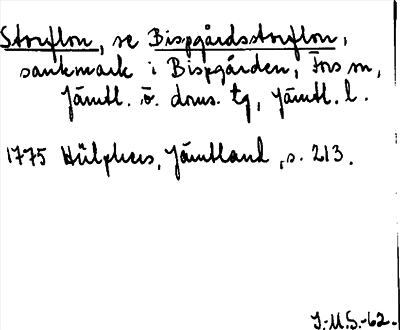 Storflon, se Bispgårdsstorflon,
sankmark i Bispgården, Fors sn,
Jämtl. ö. doms. tg, Jämtl. l.
1775 Hülphers, Jämtland, s. 213.
I.M.S.-62.